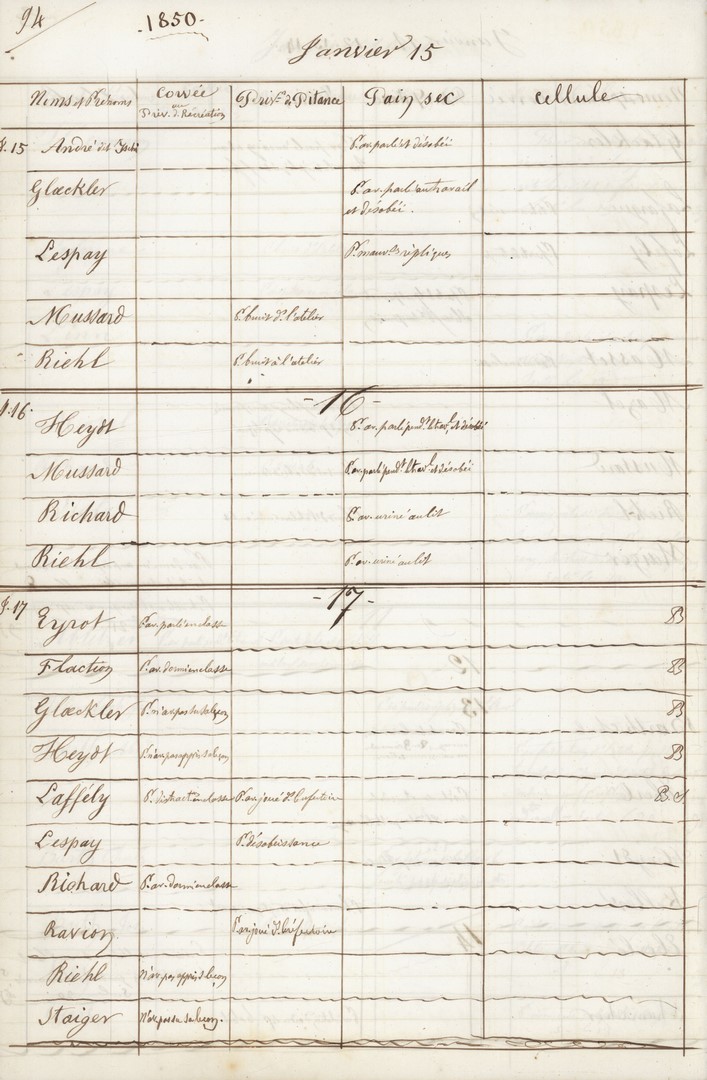 94
1850.
Janvier 15
Noms et Prénoms Corvée ou Priv. d. Récréation Priv.on de Pitance Pain sec Cellule
J. 15 André dit P. av. parlé et désobéi
Glœckler P. av. parlé au travail
et désobéi.
Lespay P. mauv.ses répliques
Mussard P. bruit ds. l'atelier
Riehl P. bruit à l'atelier
16
J. 16 Heydt P. av. parlé pend.t le trav.l et désobéi
Mussard P. av. parlé pend.t le trav.l et désobéi
Richard P. av. uriné au lit
Riehl P. av. uriné au lit
17
J. 17 Eyrot P. av. parlé en classe B
Flaction P. av. dormi en classe B
Glœckler P. n'av. pas su sa leçon B
Heydt P. n'av. pas appris sa leçon B
Laffély P. distract. en classe P. av. joué ds. le réfectoire B
Lespay P. désobéissance
Richard P. av. dormi en classe
Ravion P. av. joué ds. le réfectoire
Riehl N'av. pas appris s. leçon
Staiger N'av. pas su sa leçon.